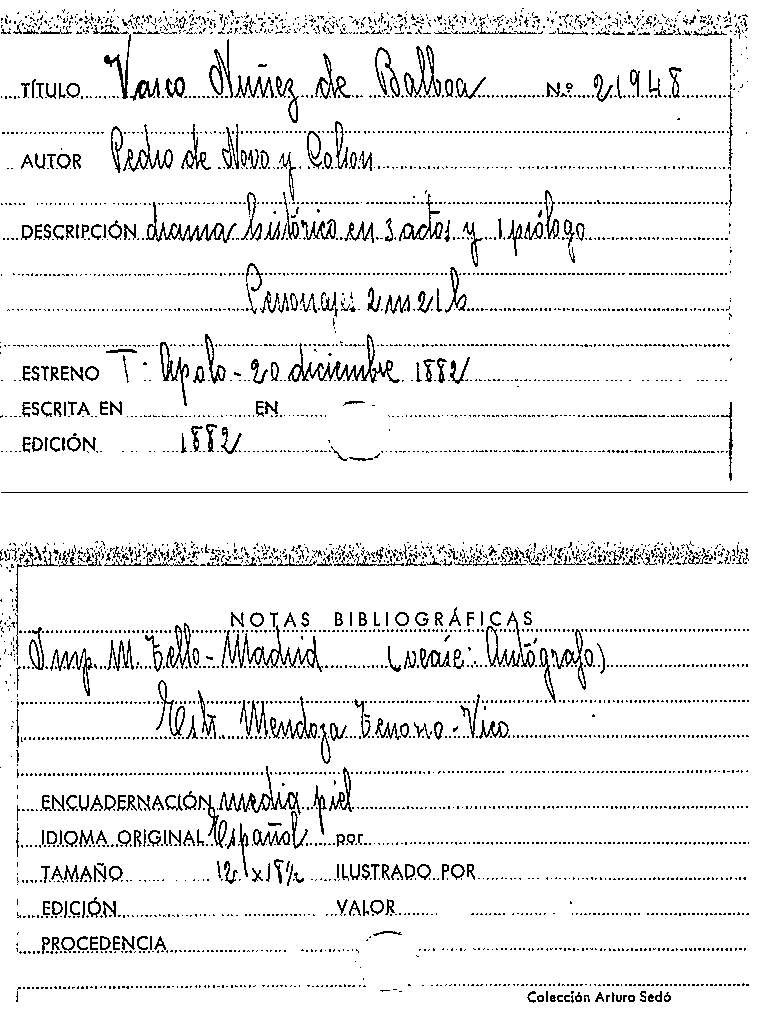 TÍTULO Vasco Nuñez de Balboa N.º 21948
AUTOR Pedro de Novo y Colson
DESCRIPCIÓN drama histórico en 3 actos y 1 prólogo
Personajes 2 m 21 h
ESTRENO T. Apolo - 20 diciembre 1882
ESCRITA EN EN
EDICIÓN 1882
NOTAS BIBLIOGRÁFICAS
Imp. M. Tello - Madrid (veáse: Autógrafo)
Estr. Mendoza Tenorio - Vico
ENCUADERNACIÓN media piel
IDIOMA ORIGINAL Español por
TAMAÑO 12 x 18½ ILUSTRADO POR
EDICIÓN VALOR
PROCEDENCIA
Colección Arturo Sedó